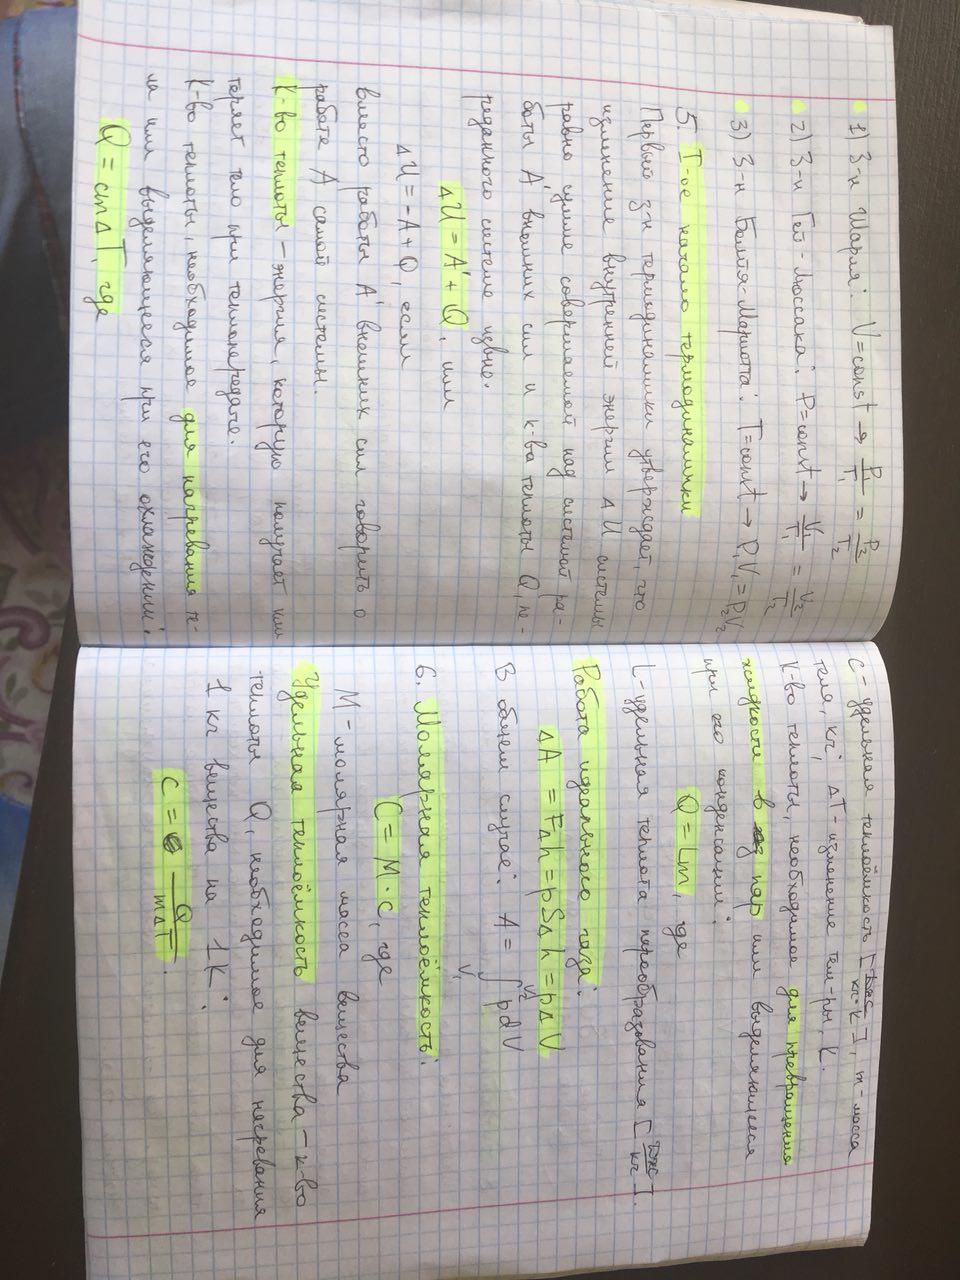 1) З-н Шарля: V=const → P₁/T₁ = P₂/T₂
2) З-н Гей-Люссака: P=const → V₁/T₁ = V₂/T₂
3) З-н Бойля-Мариотта: T=const → P₁V₁=P₂V₂
5. I-ое начало термодинамики
Первый з-н термодинамики утверждает, что
изменение внутренней энергии ΔU системы
равно сумме совершаемой над системой ра-
боты A' внешних сил и к-ва теплоты Q, пе-
реданного системе извне.
ΔU = A' + Q, или
ΔU = -A + Q, если
вместо работы A' внешних сил говорить о
работе A самой системы.
К-во теплоты – энергия, которую получает или
теряет тело при теплопередаче.
К-во теплоты, необходимое для нагревания те-
ла или выделяющееся при его охлаждении:
Q = cmΔT, где
c – удельная теплоёмкость [Дж/кг·К], m – масса
тела, кг; ΔT – изменение тем-ры, К.
К-во теплоты, необходимое для превращения
жидкости в пар или выделяющееся
при его конденсации:
Q = Lm, где
L – удельная теплота парообразования [Дж/кг].
Работа идеального газа:
ΔA = FΔh = pSΔh = pΔV
В общем случае: A = ∫ᵥ₁ᵛ² pdV
6. Молярная теплоёмкость:
C = M·c, где
M – молярная масса вещества
Удельная теплоёмкость вещества – к-во
теплоты Q, необходимое для нагревания
1 кг вещества на 1К:
c = Q/mΔT.